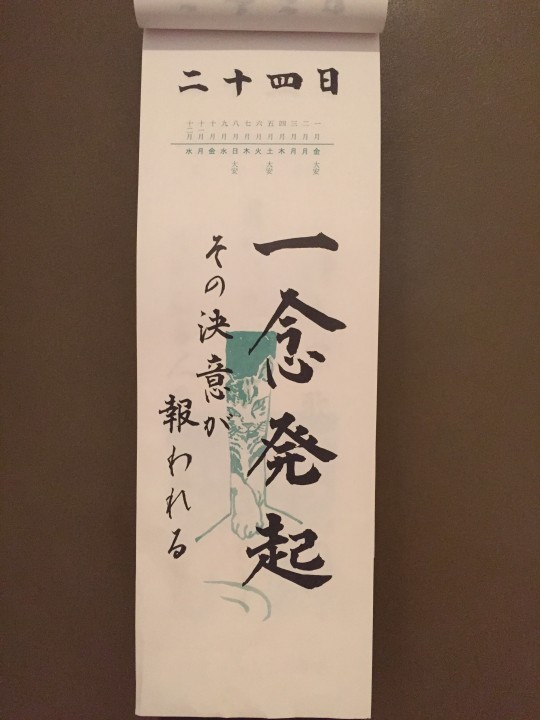 二十四日
一月 二月 三月 四月 五月 六月 七月 八月 九月 十月 十一月 十二月
金 月 月 木 土 火 木 日 水 金 月 水
大安 大安 大安
一念発起
その決意が
報われる